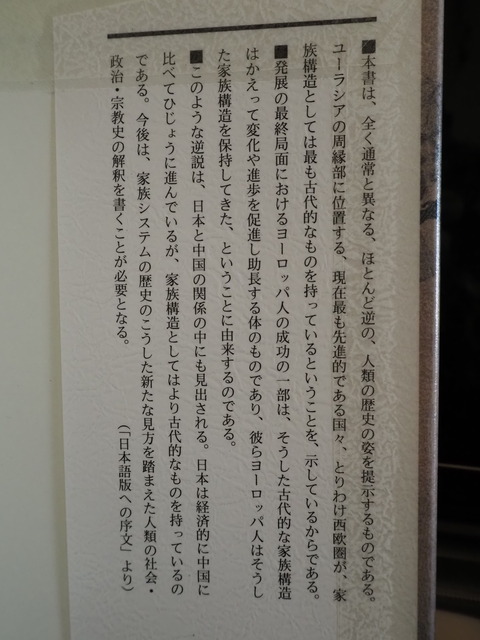 ■本書は、全く通常と異なる、ほとんど逆の、人類の歴史の姿を提示するものである。
ユーラシアの周縁部に位置する、現在最も先進的である国々、とりわけ西欧圏が、家
族構造としては最も古代的なものを持っているということを、示しているからである。
■発展の最終局面におけるヨーロッパ人の成功の一部は、そうした古代的な家族構造
はかえって変化や進歩を促進し助長する体のものであり、彼らヨーロッパ人はそうし
た家族構造を保持してきた、ということに由来するのである。
■このような逆説は、日本と中国の関係の中にも見出される。日本は経済的に中国に
比べてひじょうに進んでいるが、家族構造としてはより古代的なものを持っているの
である。今後は、家族システムの歴史のこうした新たな見方を踏まえた人類の社会・
政治・宗教史の解釈を書くことが必要となる。
（「日本語版への序文」より）